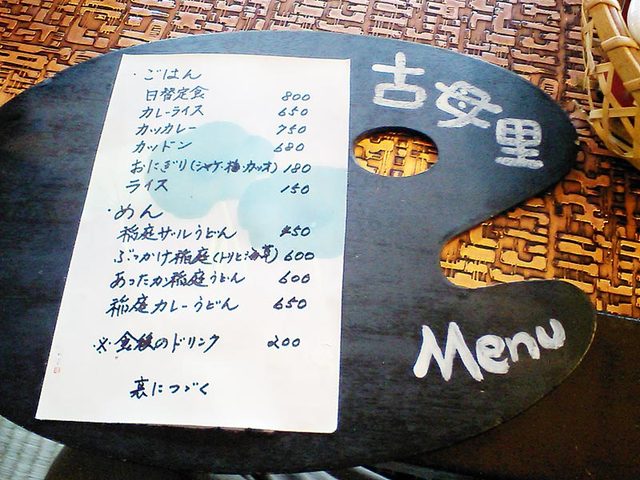 ・ごはん
日替定食 800
カレーライス 650
カツカレー 750
カツドン 680
おにぎり(シャケ・梅・カツオ) 180
ライス 150
・めん
稲庭ザルうどん 450
ぶっかけ稲庭(トリと海草) 600
あったカン稲庭うどん 600
稲庭カレーうどん 650
※食後のドリンク 200
裏につづく
古母里
Menu